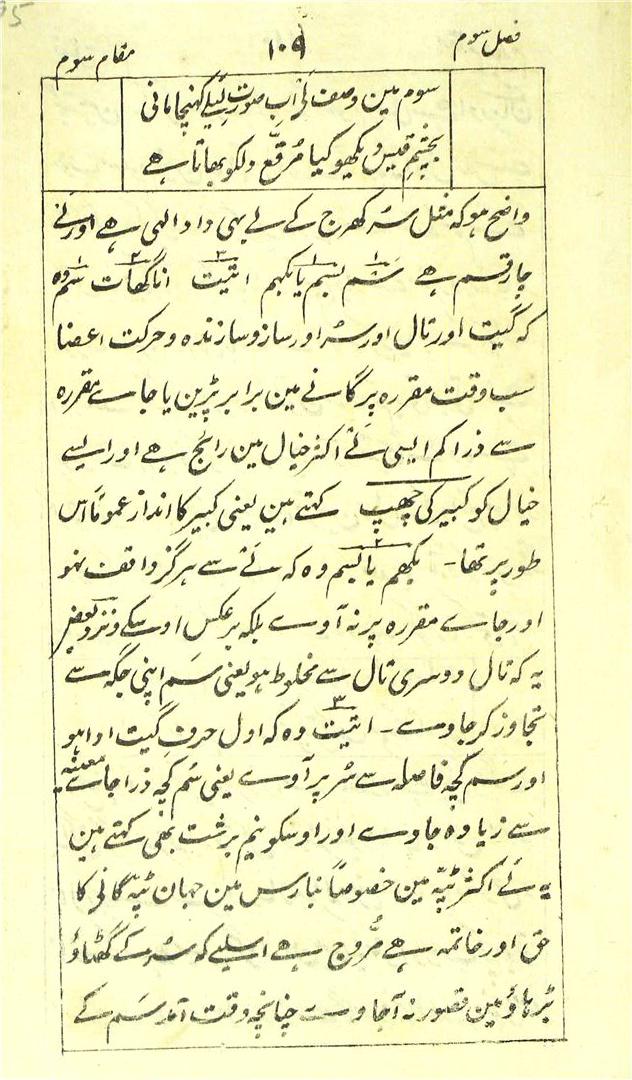 فصل سوم
۱۰۹
مقام سوم
سوم مین وصف لَے اب صورتِ لیلےٰ کھنچا مانی
بچشمِ قیس دیکھو کیا مُرقّع دلکو بھاتا ہے
واضح ہو کہ مثل سُر کھرج کے لے بھی داد الہی ہے اور لَے
چار قسم ہے ۱ سَم ۲ بسم یا بکھم ۳ اتیت ۴ اناگھات ۱ سَم وہ
کہ گیت اور تال اور سُر اور ساز و سازندہ و حرکت اعضا
سب وقت مقررہ پر گانے مین برابر پڑین یا جاے مقررہ
سے ذرا کم ایسی لَے اکثر خیال مین رائج ہے اور ایسے
خیال کو کبیر کی چھپ کہتے ہین یعنی کبیر کا انداز عموماً اس
طور پر تھا۔ ۲ بکھم یا بسم وہ کہ لَے سے ہرگز واقف نہو
اور جاے مقررہ پر نہ آوے بلکہ برعکس اوسکے و نزد بعض
یہ کہ تال دوسری تال سے مخلوط ہو یعنی سَم اپنی جگہ سے
تجاوز کر جاوے۔ ۳ اتیت وہ کہ اول حرفِ گیت ادا ہو
اور سم کچھ فاصلہ سے سُر پر آوے یعنی سَم کچھ ذرا جاے معینہ
سے زیادہ جاوے اور اوسکو نیم برشت بھی کہتے ہین
یہ لَے اکثر ٹپّہ مین خصوصاً بنارس مین جہان ٹپّہ گانی کا
حق اور خاتمہ ہے مُروّج ہے اسلیے کہ سُر کے گھٹاؤ
بڑھاؤ مین قصور نہ آجاوے چنانچہ وقت آمد سَم کے